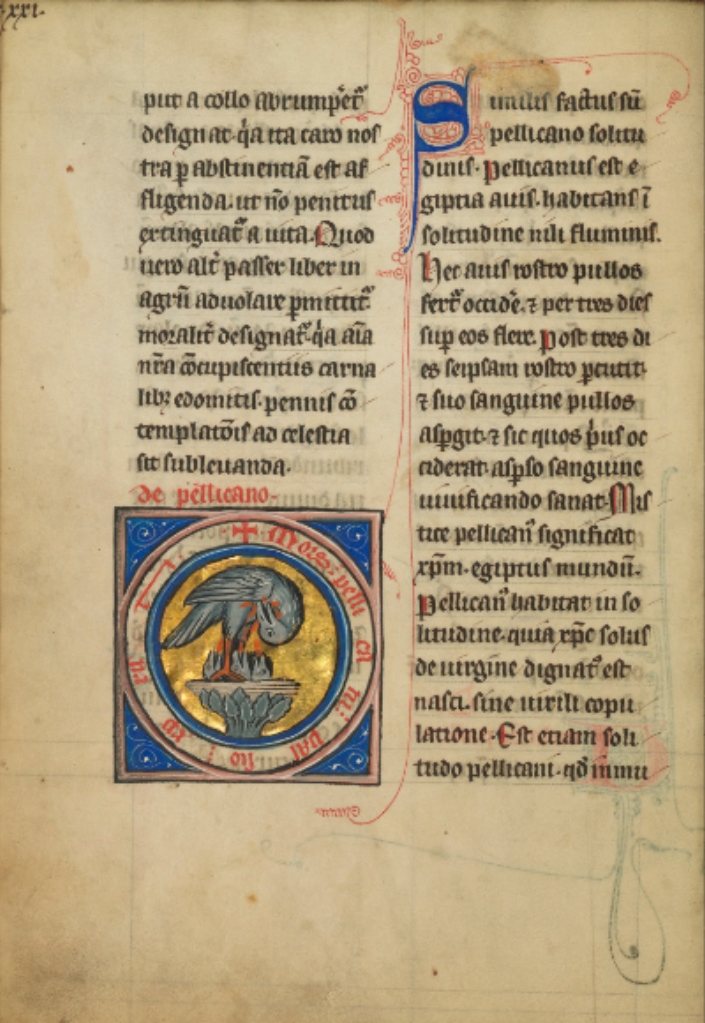 ·xxi·
put a collo abrumpet᷑
designat· q̇a ita caro nos
tra ꝑ abstinentiā est af
fligenda· ut nō penitus
extinguat᷑ a uita· Quod
uero alt᷑ passer liber in
agrū aduolare ꝑmittit᷑·
moralit᷑ designat᷑· q̇a aīa
nr̄a cōcupiscentiis carna
libꝫ edomitis· pennis cō
templatōis ad celestia
sit subleuanda·
de pellicano·
Mors: pelli ca ni:
Similis factus sū
pellicano solitu
dinis· Pellicanus est e
giptia auis· habitans ī
solitudine nili fluminis·
Hec auis rostro pullos
fert᷑ occidē· ⁊ per tres dies
sup eos flere· Post tres di
es seipsam rostro ꝑcutit·
⁊ suo sanguine pullos
asꝑgit· ⁊ sic quos p̍us oc
ciderat· asꝑso sanguine
uiuificando sanat· Mis
tice pellicanꝰ significat
xp̄m· egiptus mundū·
Pellicanꝰ habitat in so
litudine· quia xp̄c solus
de uirgine dignatꝰ est
nasci· sine uirili copu
latione· Est etiam soli
tudo pellicani· qd̄ inmu